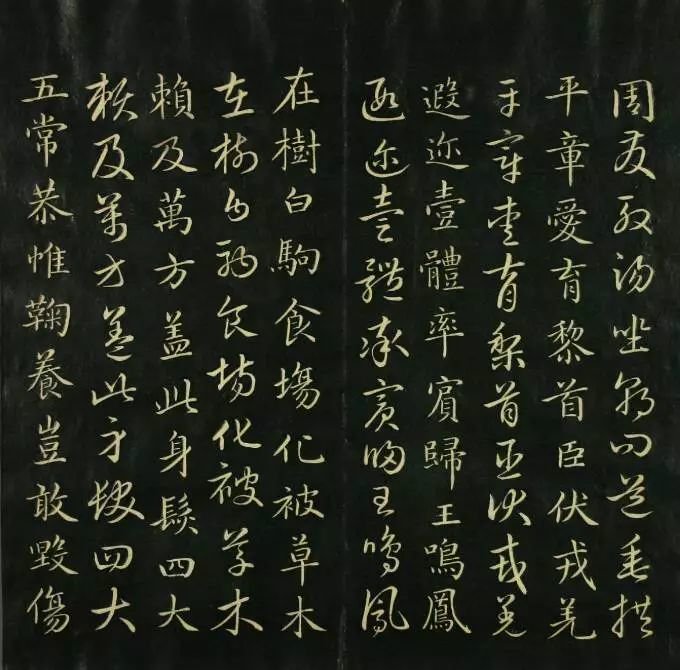 周發殷湯坐朝問道垂拱
平章愛育黎首臣伏戎羌
平章愛育黎首臣伏戎羌
遐迩壹體率賓歸王鳴鳳
遐迩壹體率賓歸王鳴鳳
在樹白駒食塲化被草木
在樹白駒食塲化被草木
賴及萬方盖此身髮四大
賴及萬方盖此身髮四大
五常恭惟鞠養豈敢毀傷